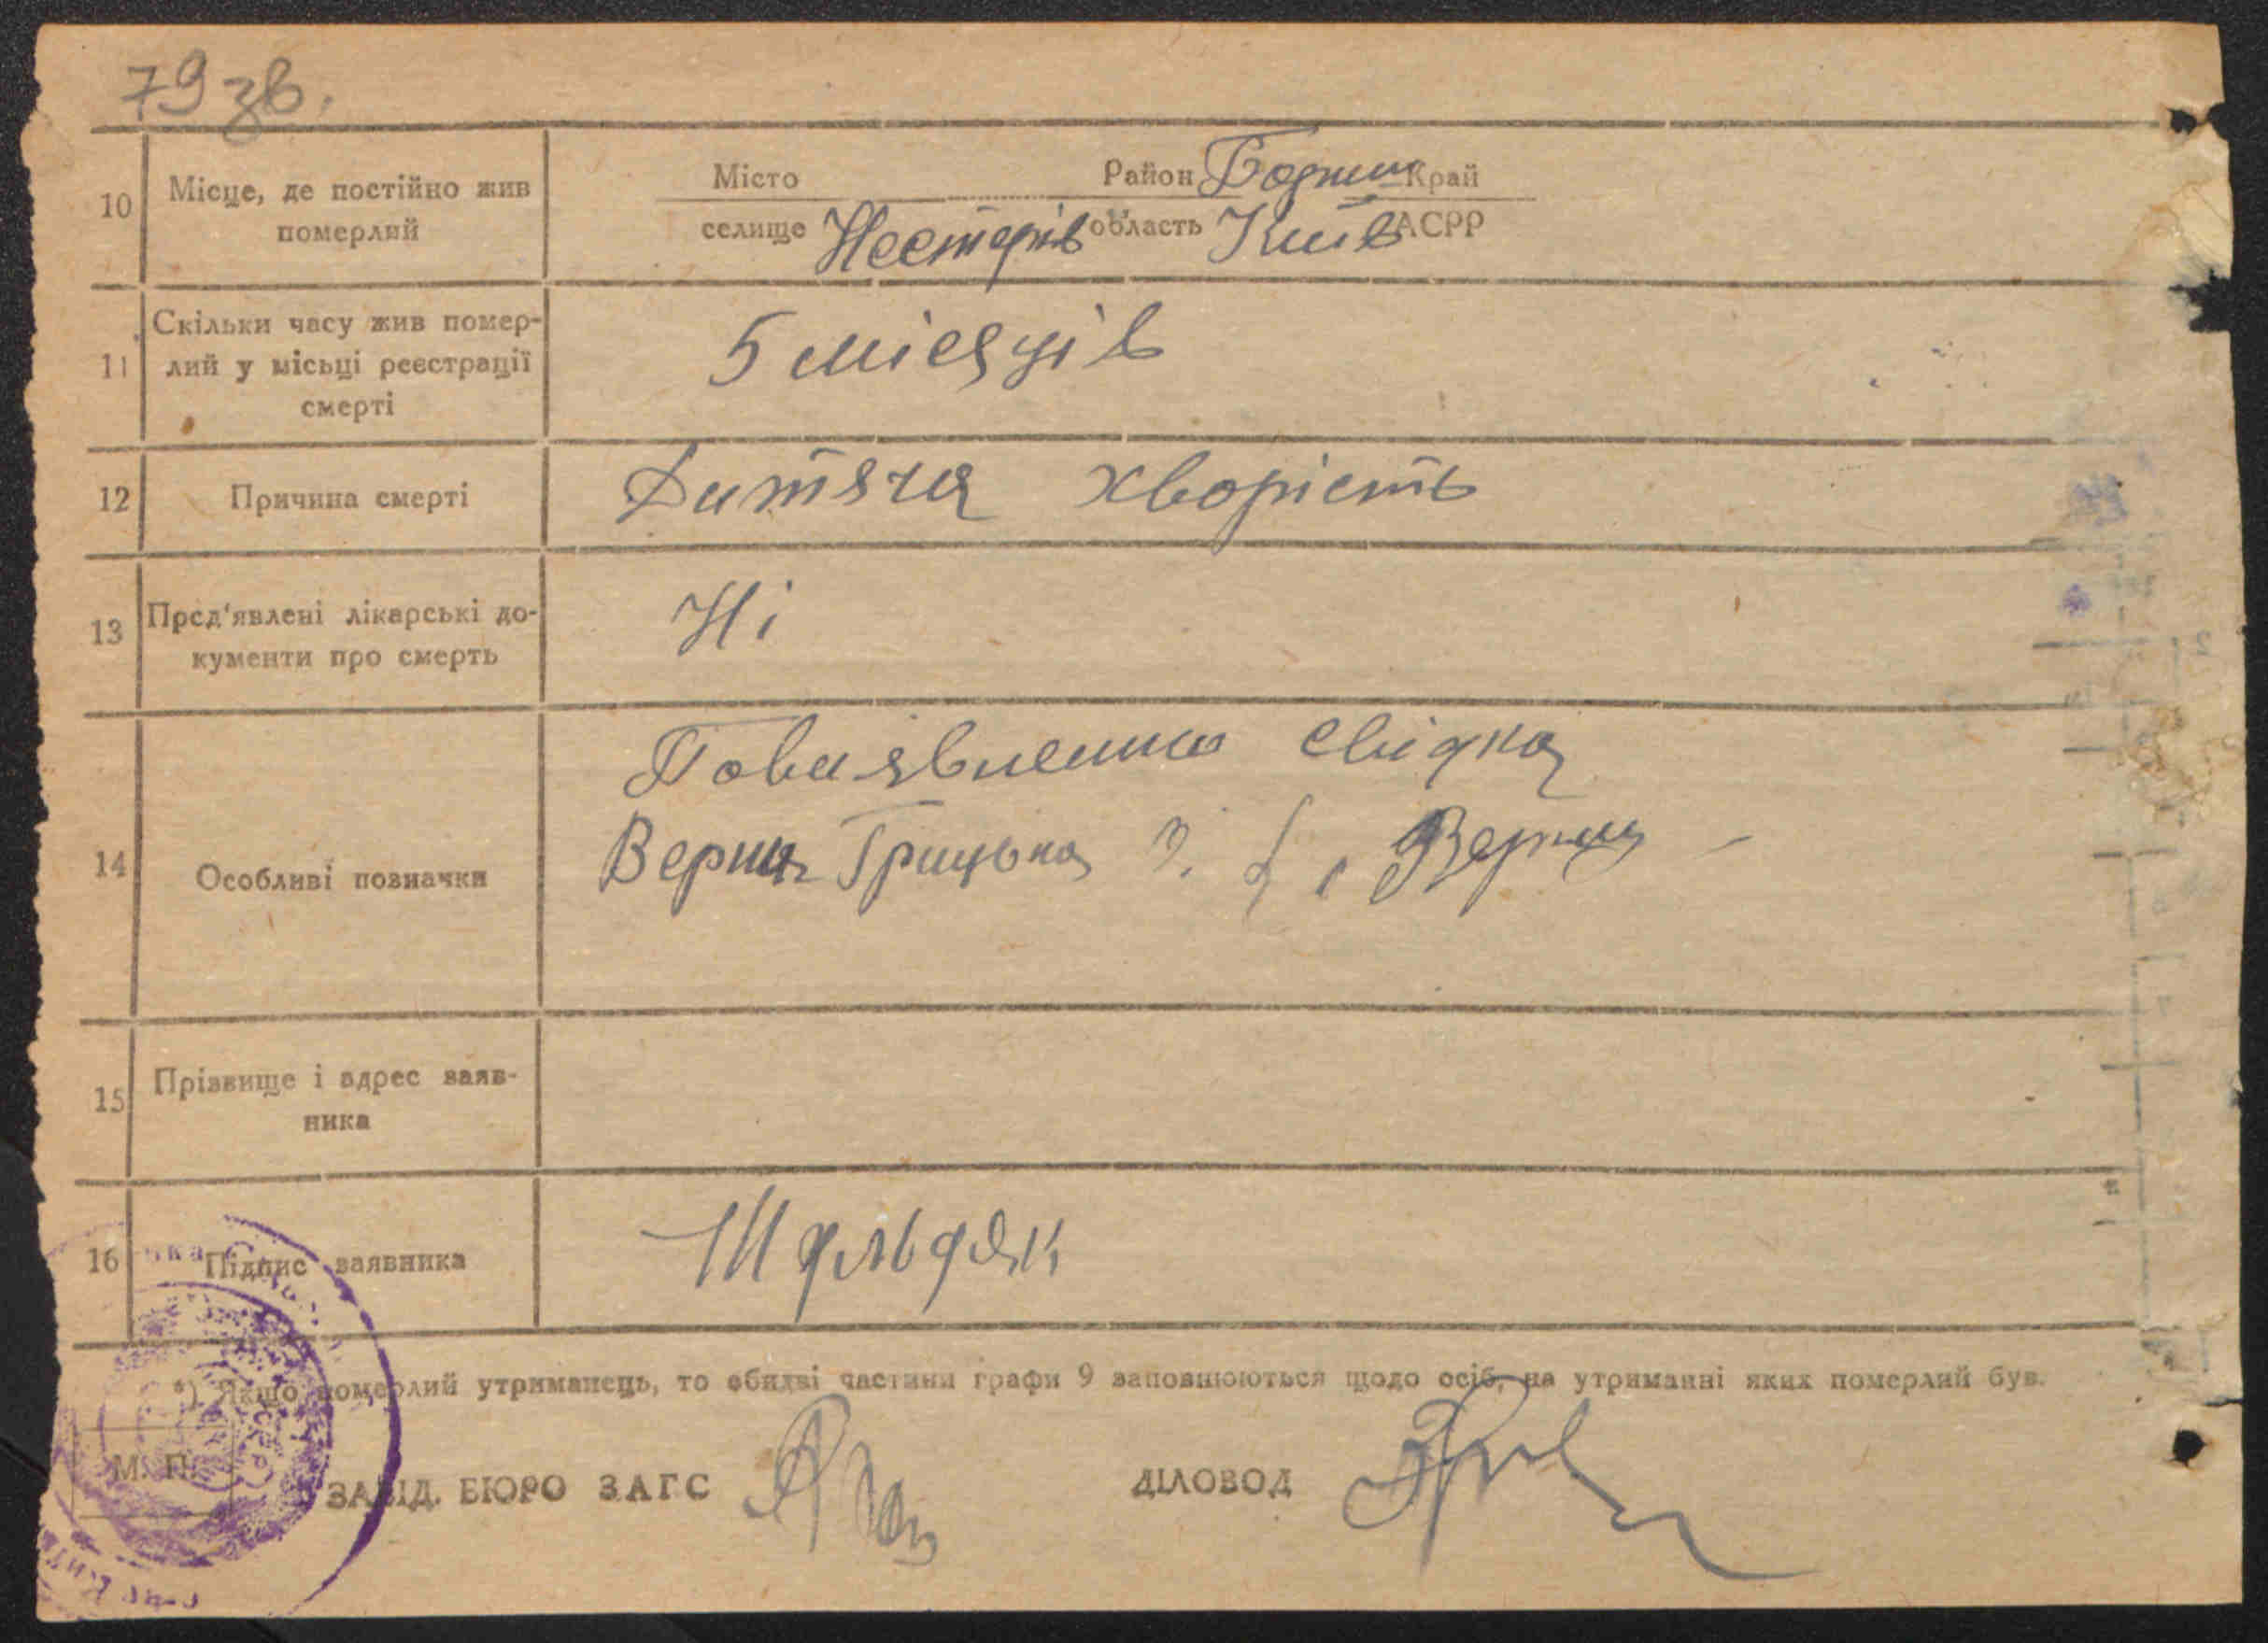 79 зв.
10 Місце, де постійно жив померлий
Місто Район Край
селище Нестерів область Київ АСРР
11 Скільки часу жив померлий у місьці реєстрації смерті
5 місяців
12 Причина смерті
Дитяча хворість
13 Пред'явлені лікарські документи про смерть
Ні
14 Особливі позначки
свідка
Грицька
15 Прізвище і адрес заявника
16 Підпис заявника
*) Якщо померлий утриманець, то обидві частини графи 9 заповнюються щодо осіб, на утриманні яких померлий був.
М. П.
ЗАВІД. БЮРО ЗАГС
ДІЛОВОД